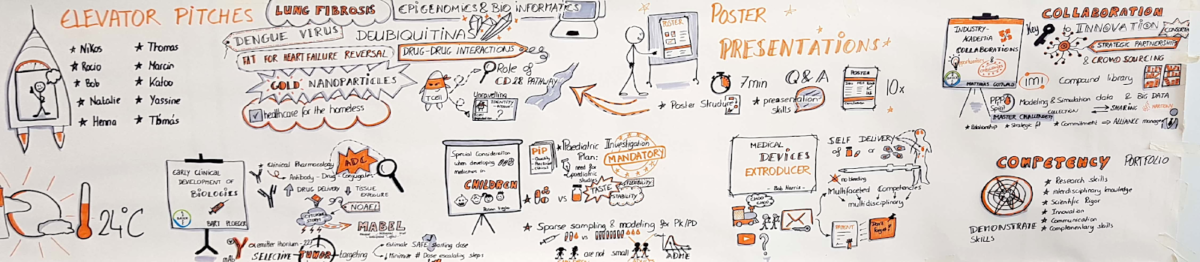 ELEVATOR PITCHES
★ Nikos
★ Rocio
★ Bob
★ Natalie
★ Henna
★ Thomas
★ Marcin
★ Katoo
★ Yassine
★ Tomás
LUNG FIBROSIS
EPIGENOMICS & BIO INFORMATICS
DENGUE VIRUS
DEUBIQUITINAS
TAT FOR HEART FAILURE REVERSAL
DRUG-DRUG INTERACTIONS
GOLD NANOPARTICLES
healthcare for the homeless
T Cell
Role of
CD28 PATHWAY
Unravelling
IDENTITY
POSTER
POSTER
PRESENTATIONS
★ Poster Structure
7min
Q&A
★ presentation
skills
POSTER
10x
INDUSTRY-
ACADEMIA
COLLABORATIONS
opportunities
MATTHIAS GOTTWALD
COLLABORATION
Key
to INNOVATION
CONSORTIA
STRATEGIC PARTNERSHIP
& CROWD SOURCING
imi
Compound library
Modeling & Simulation data & BIG DATA
COLLECTION → SHARING
MASTER CHALLENGES
★ Relationship
★ Strategic fit
★ Commitment
⇒ ALLIANCE manager
24°C
EARLY CLINICAL
DEVELOPMENT OF
BIOLOGICS
BART PLOEGER
★ Clinical Pharmacology
Antibody-Drug-Conjugates
ADC
↑ DRUG DELIVERY
↓ TISSUE
EXPOSURE
NOAEL
MABEL
thorium-227
SELECTIVE TUMOR targeting
estimate SAFE starting dose
↓ Minimize # Dose escalating steps
Special Consideration
when developing
medicines in
CHILDREN
PIP
★ Paediatric Investigation
Plan:
MANDATORY
need for
paediatric
studies
VS
TASTE
FLEXIBILITY
STABILITY
★ Sparse sampling & modeling for PK/PD
VS
are not small
ADME
MEDICAL
DEVICES
EXTRODUCER
SELF DELIVERY
of or
no bleeding
★ Multifaceted Competencies
→ multidisciplinary
PATENT
?
COMPETENCY PORTFOLIO
DEMONSTRATE
SKILLS
★ Research skills
★ Interdisciplinary knowledge
★ Scientific Rigor
★ Innovation
★ Communication
★ Complementary skills